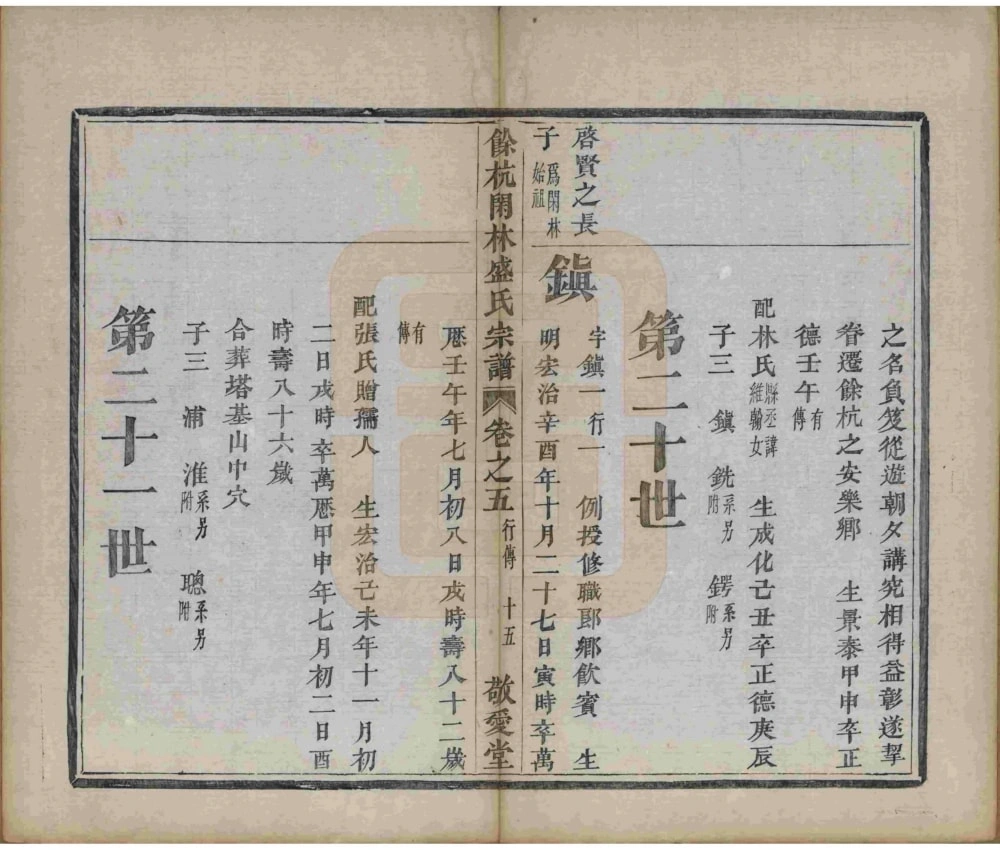 之名負笈從遊朝夕講究相得益彰遂挈
眷遷餘杭之安樂鄉　生景泰甲申卒正
德壬午有傳
配林氏縣丞諱維翰女　生成化己丑卒正德庚辰
子三　鎮　銑系另附　鍔系另附
第二十世
啓賢之長
子爲閑林始祖
鎮
字鎮一行一　例授修職郎鄉飲賓　生
明宏治辛酉年十月二十七日寅時卒萬
餘杭閑林盛氏宗譜　卷之五　行傳　十五　敬愛堂
厯壬午年七月初八日戌時壽八十二歲
有傳
配張氏贈孺人　生宏治己未年十一月初
二日戌時卒萬厯甲申年七月初二日酉
時壽八十六歲
合葬塔基山中穴
子三　浦　淮系另附　聰系另附
第二十一世